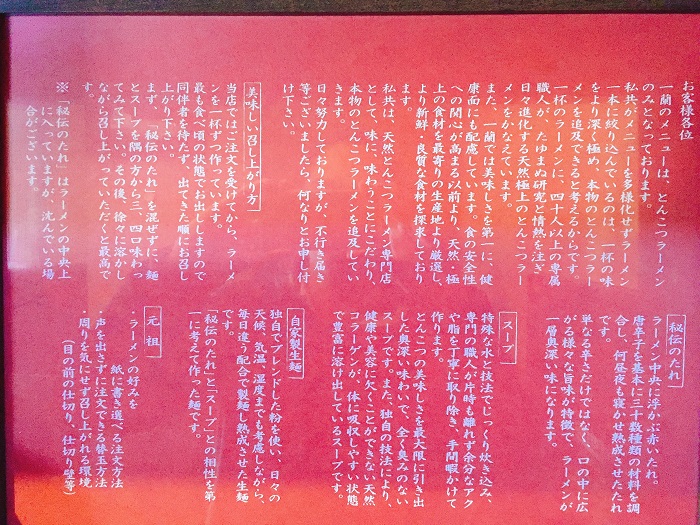 お客様各位
一蘭のメニューは、とんこつラーメン
のみとなっております。
私共がメニューを多様化せずラーメン
一本に絞り込んでいるのは、一杯の味
をより深く極め、本物のとんこつラー
メンを追及できると考えるからです。
一杯のラーメンに、四十人以上の専属
職人が、たゆまぬ研究と情熱を注ぎ
日々進化する天然極上のとんこつラー
メンをかなえています。
また、一蘭では美味しさを第一に、健
康面にも配慮しています。食の安全性
への関心が高まる以前より、天然・極
上の食材を最寄りの生産地より厳選し、
より新鮮・良質な食材を探求しており
ます。
私共は、天然とんこつラーメン専門店
として、味に、味わうことにこだわり、
本物のとんこつラーメンを追及してい
きます。
日々努力しておりますが、不行き届き
等ございましたら、何なりとお申し付
け下さい。
美味しい召し上がり方
当店ではご注文を受けてから、ラーメ
ンを一杯ずつ作っています。
最も食べ頃の状態でお出ししますので
同伴者を待たず、出てきた順にお召し
上がり下さい。
まず、「秘伝のたれ」を混ぜずに、麺
とスープを隅の方から三、四口味わっ
てみて下さい。その後、徐々に溶かし
ながら召し上がっていただくと最高で
す。
※「秘伝のたれ」はラーメンの中央上
に入っていますが、沈んでいる場
合がございます。
秘伝のたれ
ラーメン中央に浮かぶ赤いたれ。
唐辛子を基本に三十数種類の材料を調
合し、何昼夜も寝かせ熟成させたたれ
です。
単なる辛さだけではなく、口の中に広
がる様々な旨味が特徴で、ラーメンが
一層奥深い味になります。
スープ
特殊な水と技法でじっくり炊き込み、
専門の職人が片時も離れず余分なアク
や脂を丁寧に取り除き、手間暇かけて
作ります。
とんこつの美味しさを最大限に引き出
した奥深い味わいで、全く臭みのない
スープです。また、独自の技法により、
健康や美容に欠くことができない天然
コラーゲンが、体に吸収しやすい状態
で豊富に溶け出しているスープです。
自家製生麺
独自でブレンドした粉を使い、日々の
天候、気温、湿度までも考慮しながら、
毎日違う配合で製麺し熟成させた生麺
です。
「秘伝のたれ」と「スープ」との相性を第
一に考えて作った麺です。
元祖
・ラーメンの好みを
紙に書き選べる注文方法
・声を出さずに注文できる替玉方法
・周りを気にせず召し上がれる環境
（目の前の仕切り、仕切り壁等）